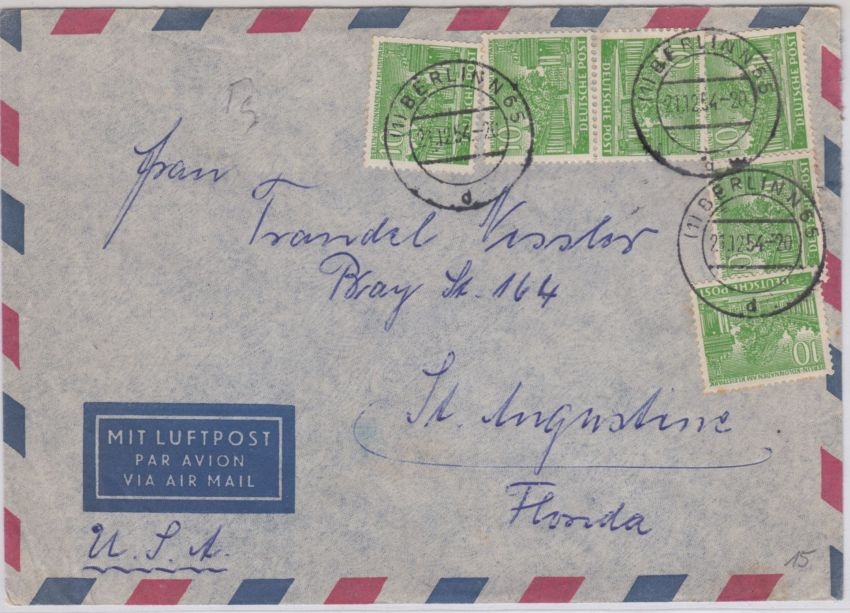 (1) BERLIN N 65
21.12.54-20
d
(1) BERLIN N 65
21.12.54-20
d
(1) BERLIN N 65
21.12.54-20
d
DEUTSCHE POST
DEUTSCHE POST
DEUTSCHE POST
DEUTSCHE POST
10
10
10
10
BERLIN-KOLONNADEN AM KLEISTPARK
Frau
Traudel Vissler
Bray St. 164
St. Augustine
Florida
MIT LUFTPOST
PAR AVION
VIA AIR MAIL
U.S.A.
15